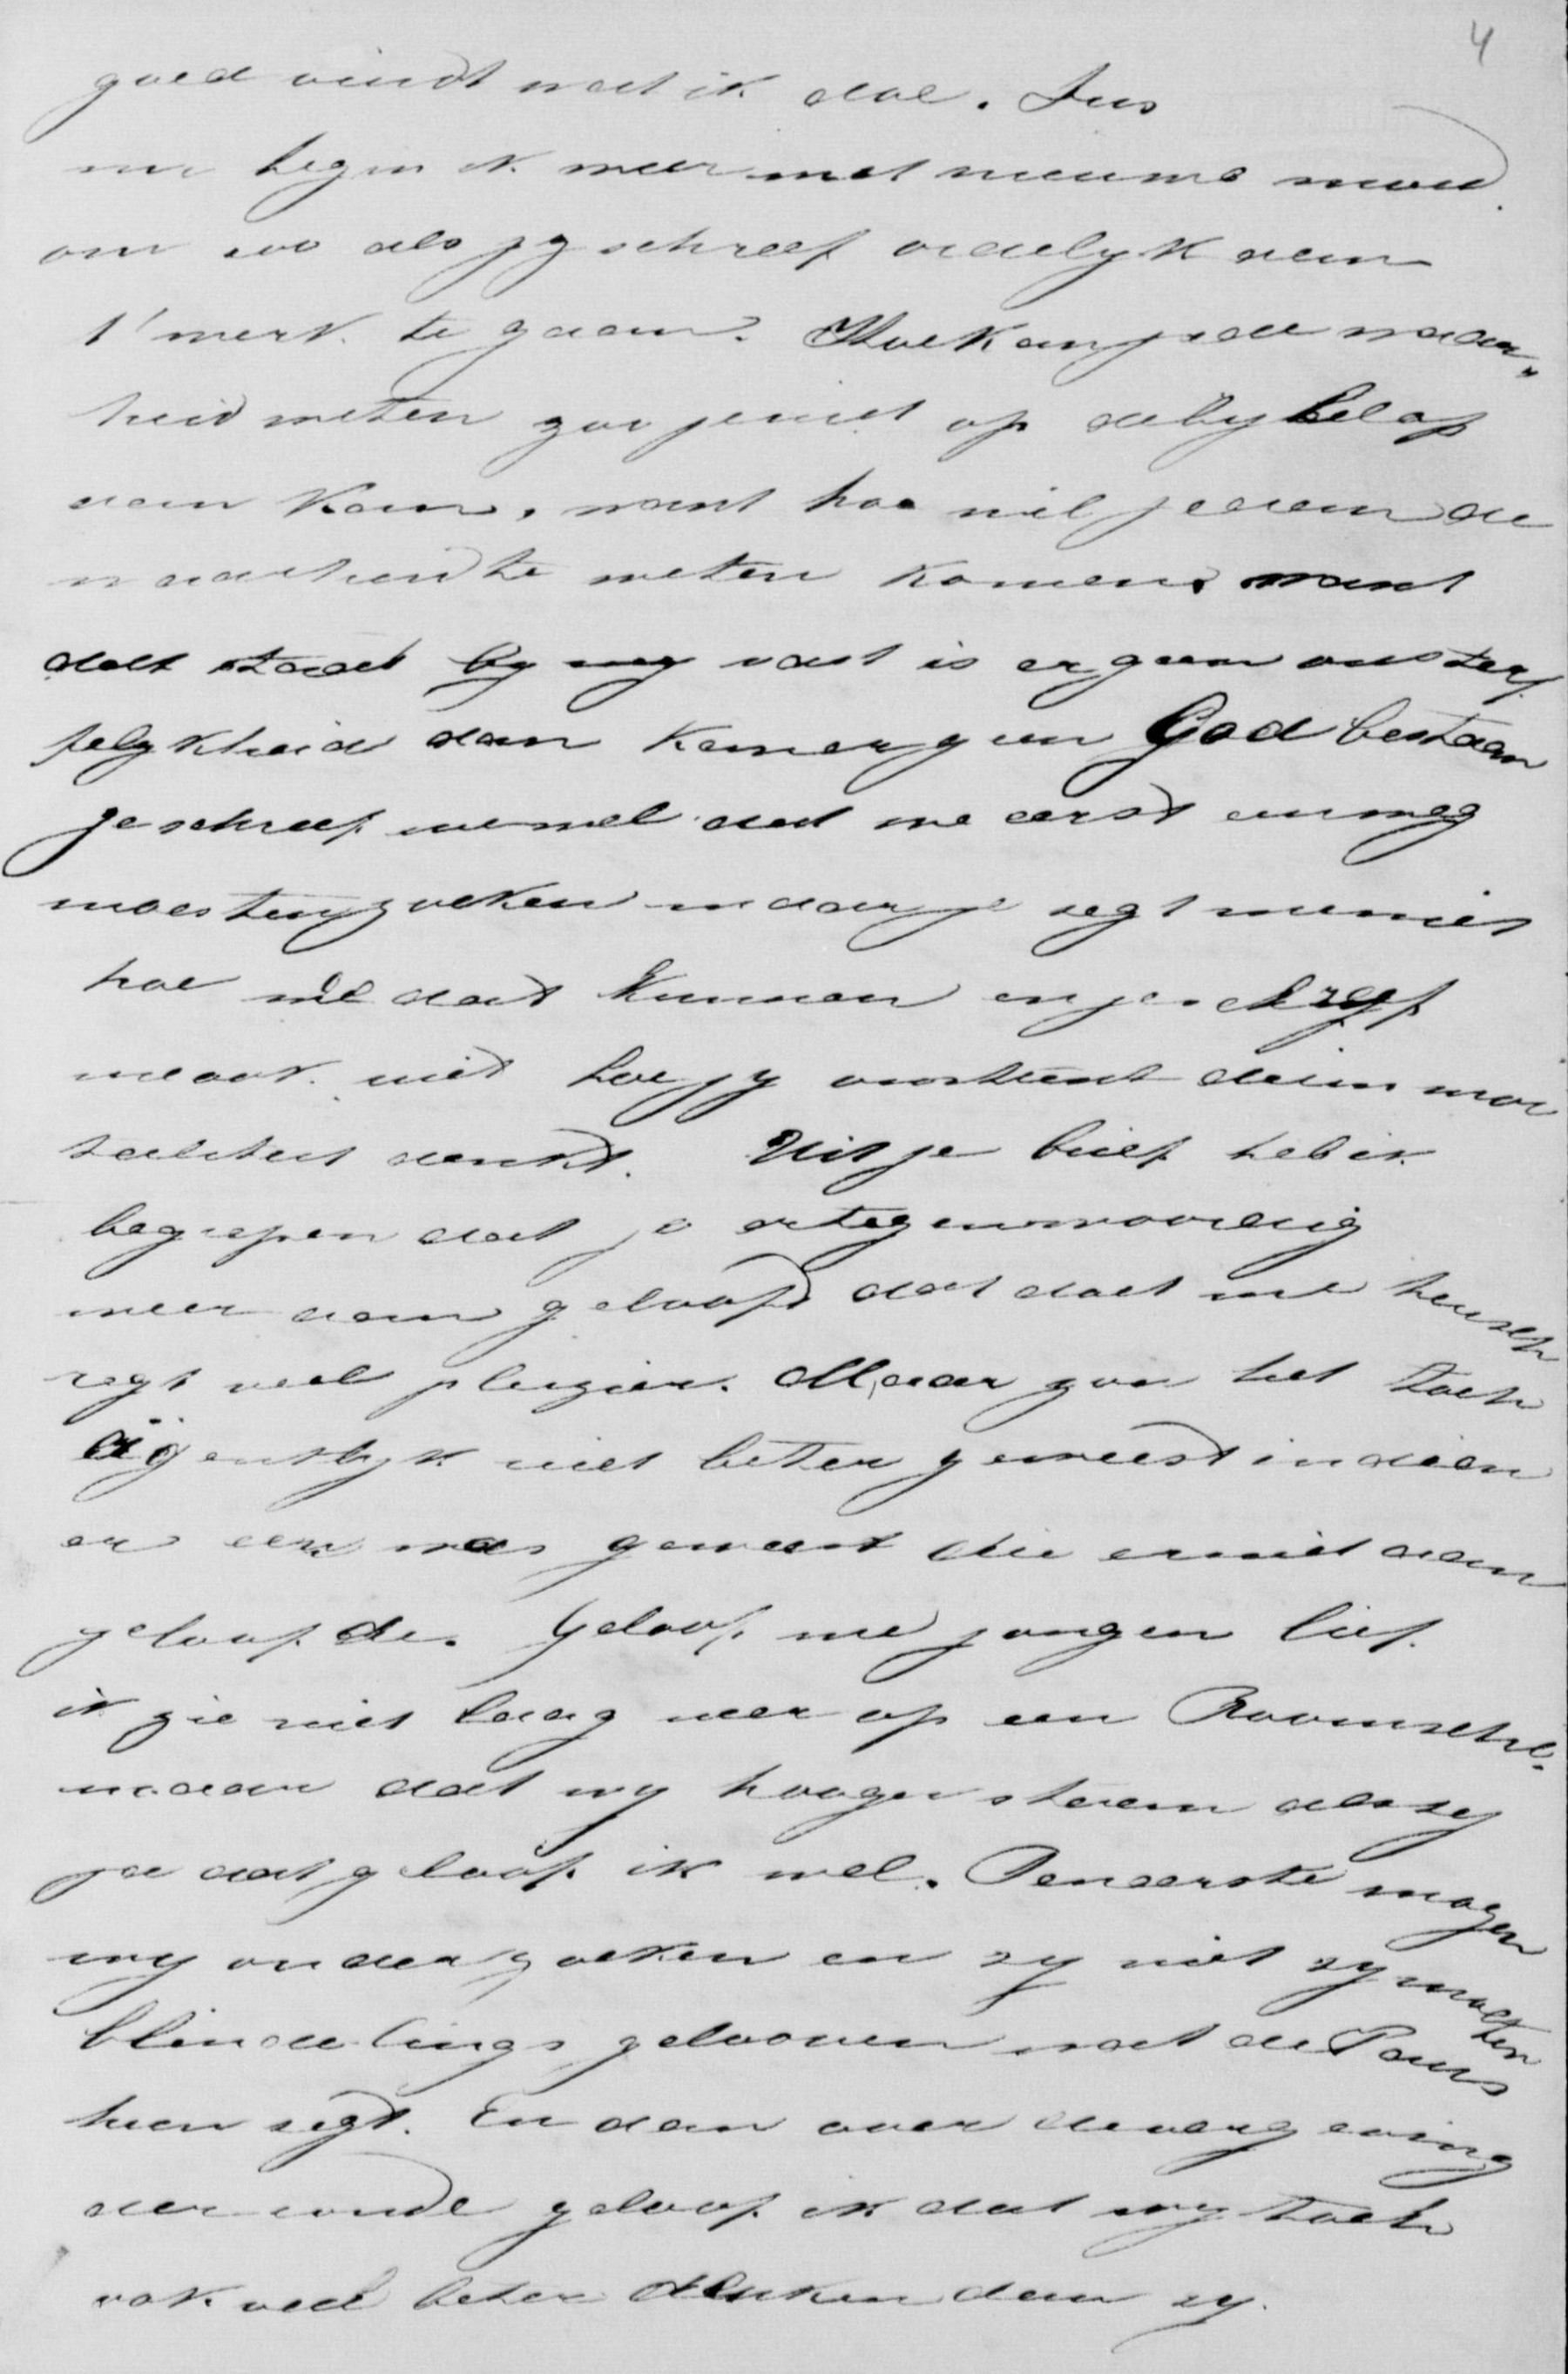 4
goed vindt wat ik doe. Dus
nu begin ik weer met nieuwe moed
om zoo als jy schreef ordelyk aan
t' werk te gaan. Hoe kan je de waar-
heid weten zoo je niet op de bybel af
aan kan, want hoe wil je aan de
waarheid te weten komen, want
dat staat by my vast is er geen onster
felykheid dan kan er geen God bestaan
je schreef me wel dat we eerst een weg
moesten zoeken maar je zegt me niet
hoe we dat kunnen en je schreef
me ook niet hoe jy omtrent de im mor
taliteit denkt. Uit je brief heb ik
begrepen dat je er tegenwoordig
meer aan gelooft dat doet me heusch
regt veel plezier. Maar zou het toch
eigentlyk niet beter geweest indien
er een was geweest die er niet aan
geloofde. Geloof me jongen lief
ik zie niet laag neer op een Roomsche.
maar dat wy hooger staan als zy
ja dat geloof ik wel. Ten eerste mogen
wy onderzoeken en zy niet zy moeten
blindelings gelooven wat de Paus
hen zegt. En dan over de vergeving
der zonde geloof ik dat wy toch
ook veel beter denken dan zy.